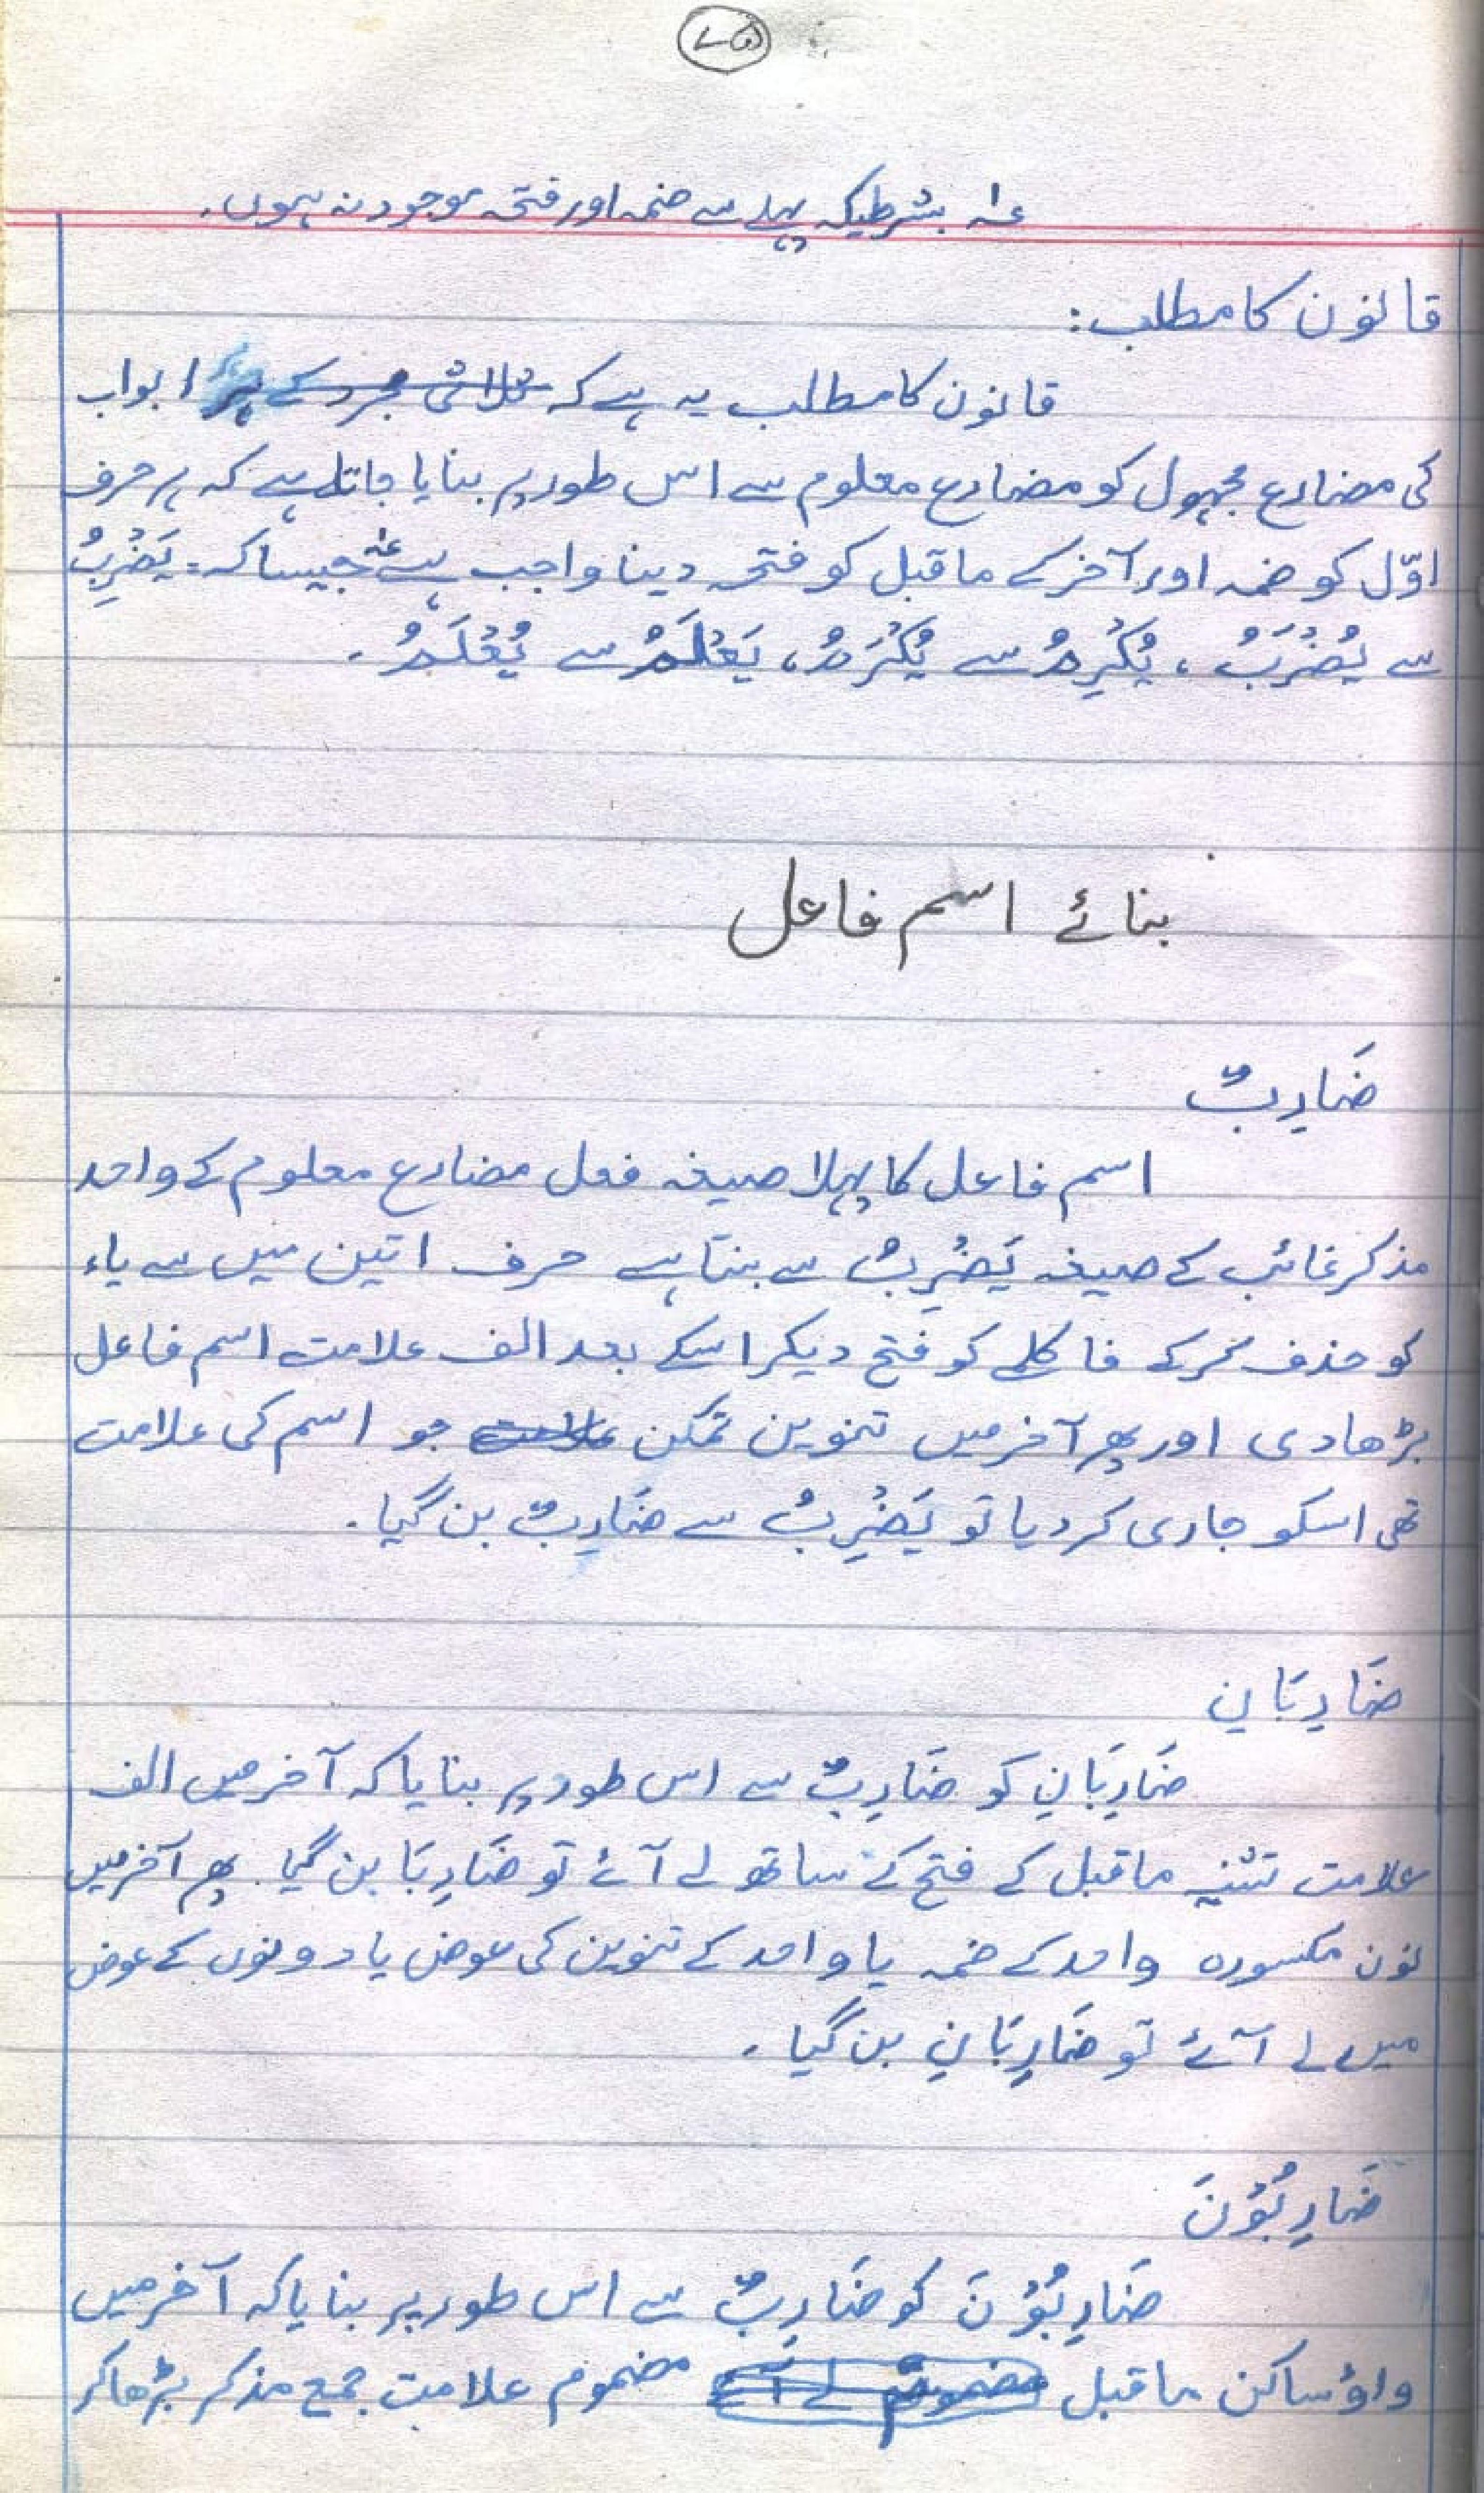 ۷۵
عہ بشرطیکہ پہلے سے ضمہ اور فتحہ موجود نہ ہوں۔
قانون کا مطلب:
قانون کا مطلب یہ ہے کہ ثلاثی مجرد کے ہر ابواب
کی مضارع مجہول کو مضارع معلوم سے اس طور پر بنایا جاتا ہے کہ ہر حرف
اوّل کو ضمہ اور آخر کے ماقبل کو فتحہ دینا واجب ہے عہ جیسا کہ: یَضْرِبُ
سے یُضْرَبُ ، یُکْرِمُ سے یُکْرَمُ، یَعْلَمُ سے یُعْلَمُ۔
بنائے اسم فاعل
ضَارِبٌ
اسم فاعل کا پہلا صیغہ فعل مضارع معلوم کے واحد
مذکر غائب کے صیغہ یَضْرِبُ سے بنتا ہے حرف اتین میں سے یاء
کو حذف کرکے فا کلمے کو فتح دیکر اسکے بعد الف علامت اسم فاعل
بڑھا دی اور پھر آخر میں تنوین تمکن علامت جو اسم کی علامت
تھی اسکو جاری کر دیا تو یَضْرِبُ سے ضَارِبٌ بن گیا۔
ضَارِبَانِ
ضَارِبَانِ کو ضَارِبٌ سے اس طور پر بنایا کہ آخر میں الف
علامت تثنیہ ماقبل کے فتح کے ساتھ لے آئے تو ضَارِبَا بن گیا۔ پھر آخر میں
نون مکسورہ واحد کے ضمہ یا واحد کے تنوین کی عوض یا دونوں کے عوض
میں لے آئے تو ضَارِبَانِ بن گیا۔
ضَارِبُوْنَ
ضَارِبُوْنَ کو ضَارِبٌ سے اس طور پر بنایا کہ آخر میں
واؤ ساکن ماقبل مضموم لے آئے مضموم علامت جمع مذکر بڑھا کر